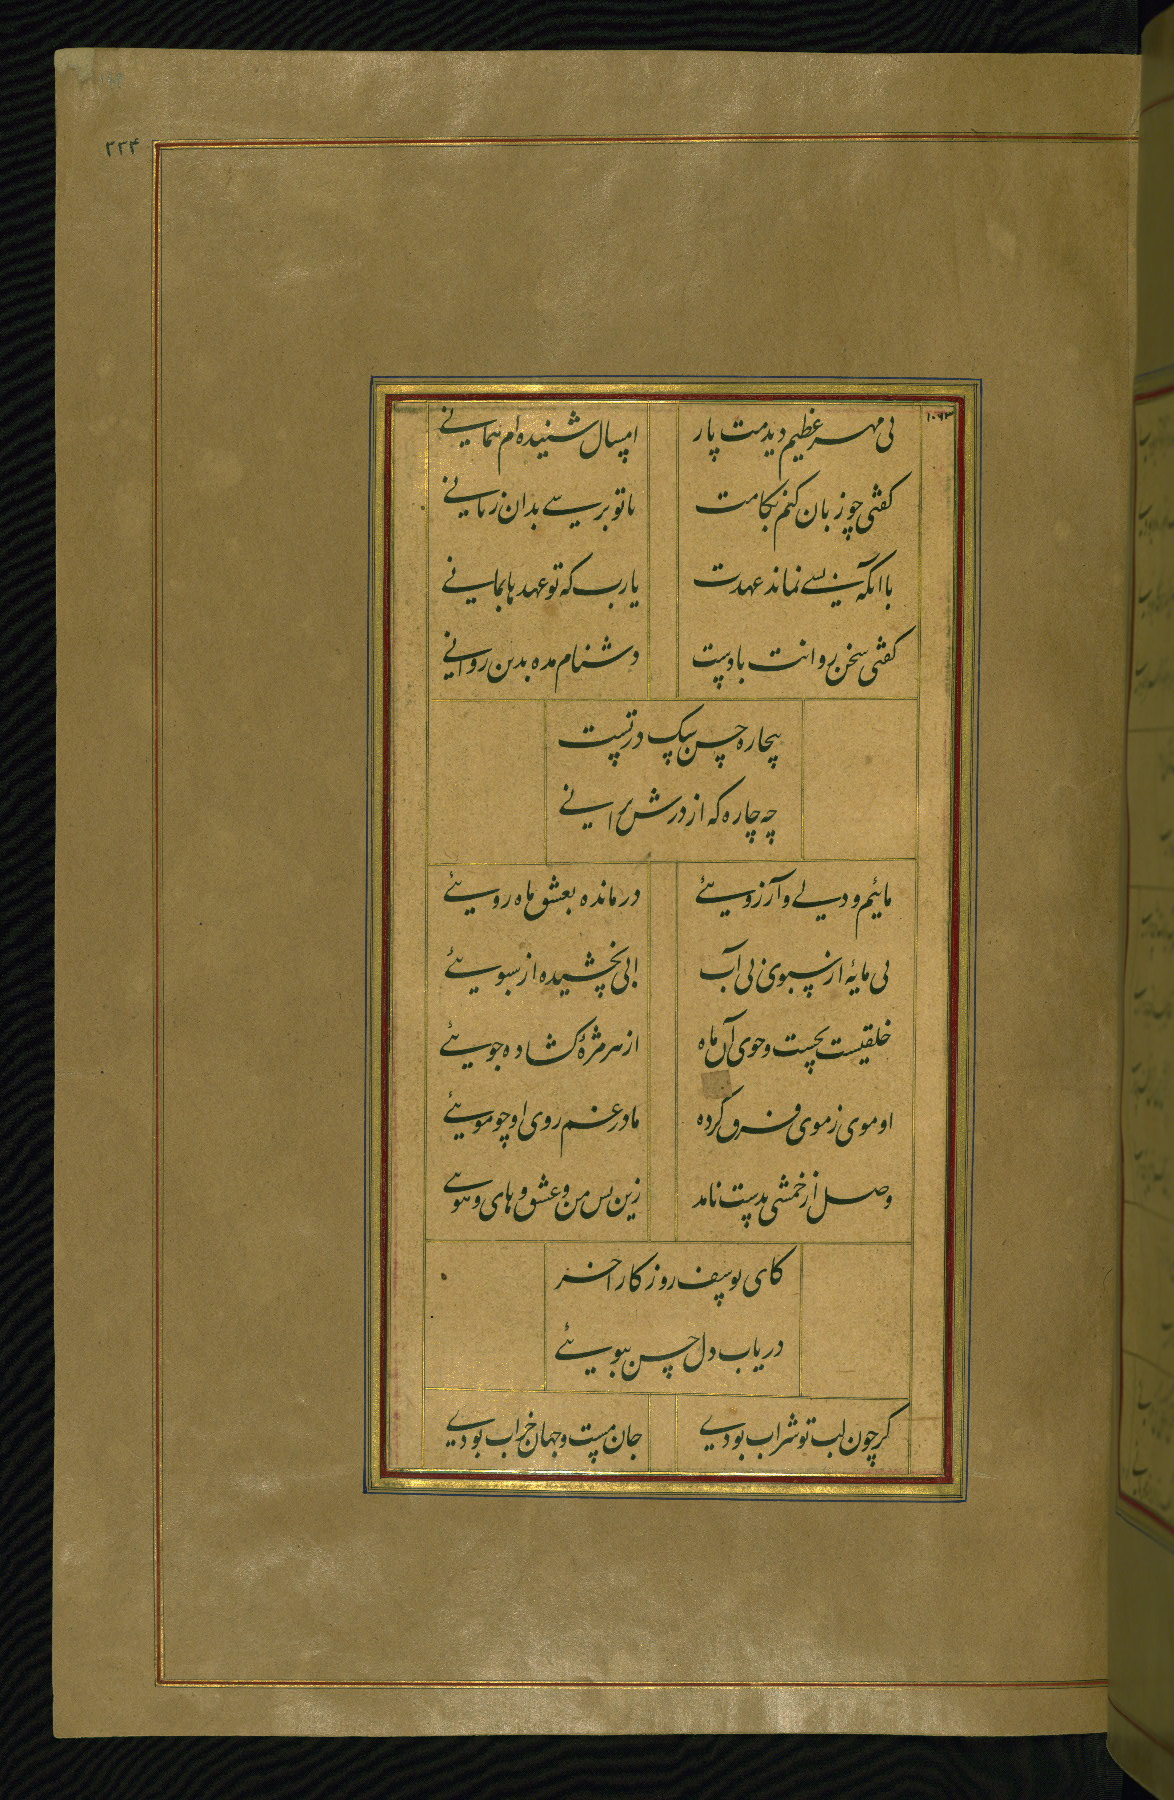 ۲۲۴
۱۰۹۳
بی مهر عظیم دیدمت پار امسال شنیده ام همانی
کفتی چو زبان کنم بکامت تا تو برسی بدان زمانی
با انکه بسی نماند عهدت یارب که تو عهدها بمانی
کفتی سخن روانت بادست دشنام مده بدین روانی
بیچاره حسن سک در تست
چه چاره که از درش برانی
مائیم و دلی و آرزوئی درمانده بعشق ماه روئی
بی مایهٔ از سبوی بی آب ابی نچشیده از سبوئی
خلقیست بجست وجوی آن ماه از هر مژهٔ کشاده جوئی
او موی ز موی فرق کرده ما در غم روی او چو موئی
وصل از خمشی بدست نامد زین پس من و عشق و های و هوئی
کای یوسف روزکار اخر
دریاب دل حسن ببوئی
کر چون لب تو شراب بودی جان مست و جهان خراب بودی